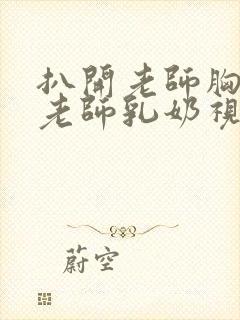 扒開老師胸
老師乳奶視
蔚空